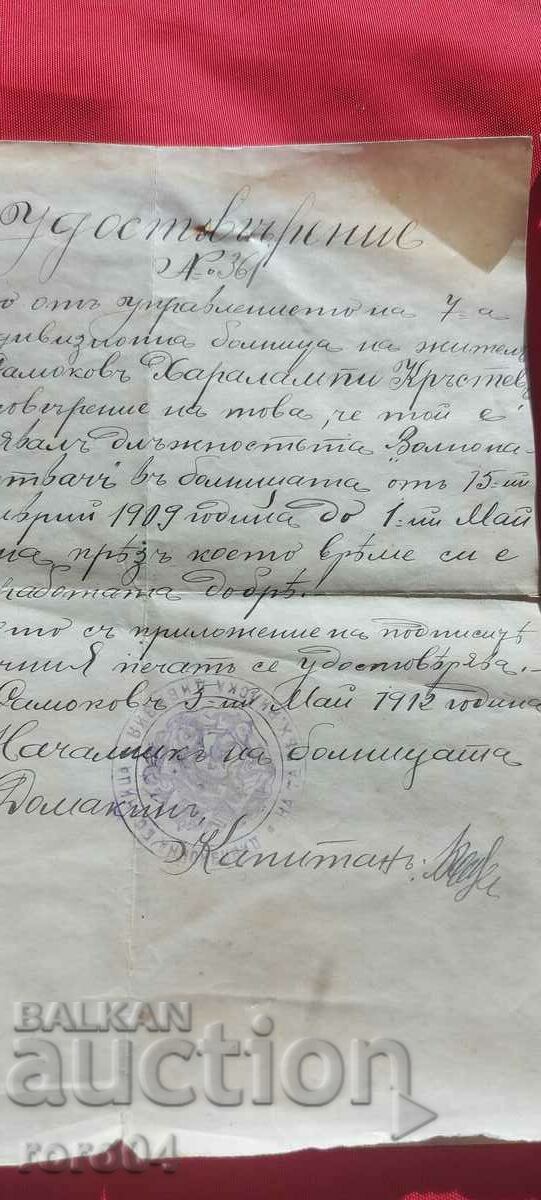 Удостовѣрение
№ 36
отъ управлението на 7-а
дивизионна болница на жителя
Самоковъ Харалампи Кръстевъ
товѣрение на това, че той е
явалъ длъжностьта Волнона-
въ болницата отъ 15-ий
1909 година до 1-ий Май
на прѣзъ което врѣме си е
работата добрѣ.-
ето съ приложение на подписитѣ
печатъ се удостовѣрява.-
Самоковъ 5-ий Май 1912 година
Началникъ на болницата
Домакинъ,
Капитанъ:
BALKAN
auction
ror304